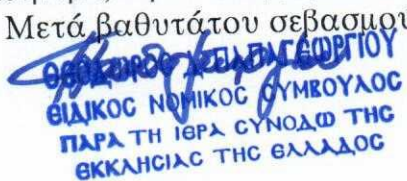 Μετά βαθυτάτου σεβασμού
ΘΕΟΔΩΡΟΣ Χ. ΠΑΠΑΓΕΩΡΓΙΟΥ
ΕΙΔΙΚΟΣ ΝΟΜΙΚΟΣ ΣΥΜΒΟΥΛΟΣ
ΠΑΡΑ ΤΗ ΙΕΡΑ ΣΥΝΟΔΩ ΤΗΣ
ΕΚΚΛΗΣΙΑΣ ΤΗΣ ΕΛΛΑΔΟΣ